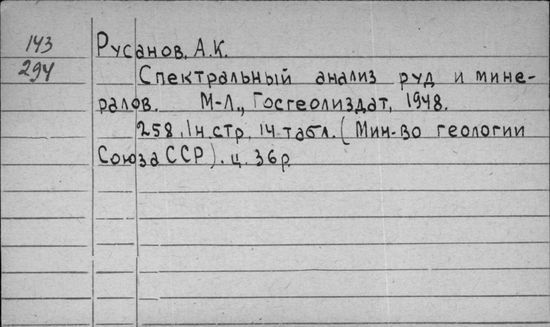 143 Русанов, А.К.
294 Спектральный анализ руд и мине-
ралов. М-Л., Госгеолиздат, 1948.
258, 1н.стр, 14 табл. (Мин-во геологии
Союза ССР). ц. 36р.